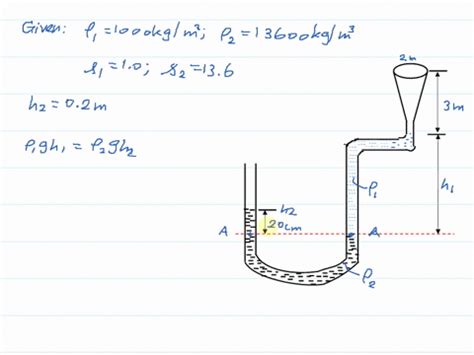 Given: ρ₁=1000kg/m³; ρ₂=13600kg/m³
s₁=1.0; s₂=13.6
h₂=0.2m
ρ₁gh₁ = ρ₂gh₂
2m
3m
h₁
ρ₁
h₂
20cm
A
A
ρ₂